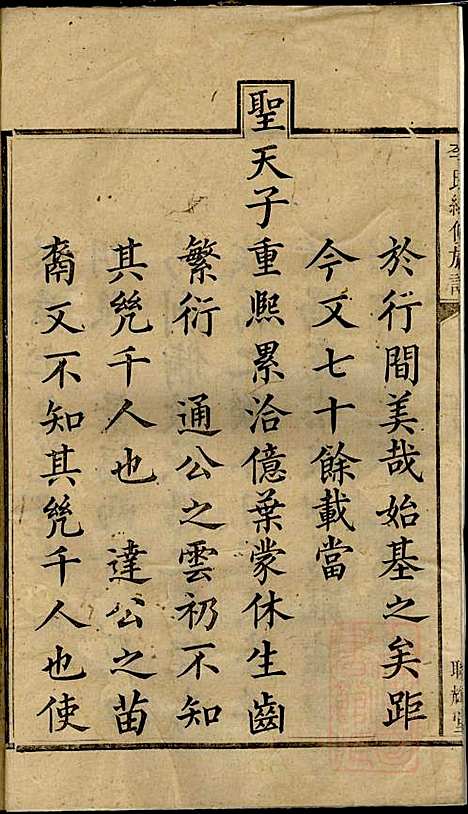 於行間美哉始基之矣距
今又七十餘載當
聖天子重熙累洽億葉蒙休生齒
繁衍　通公之雲礽不知
其凣千人也　達公之苗
裔又不知其凣千人也使